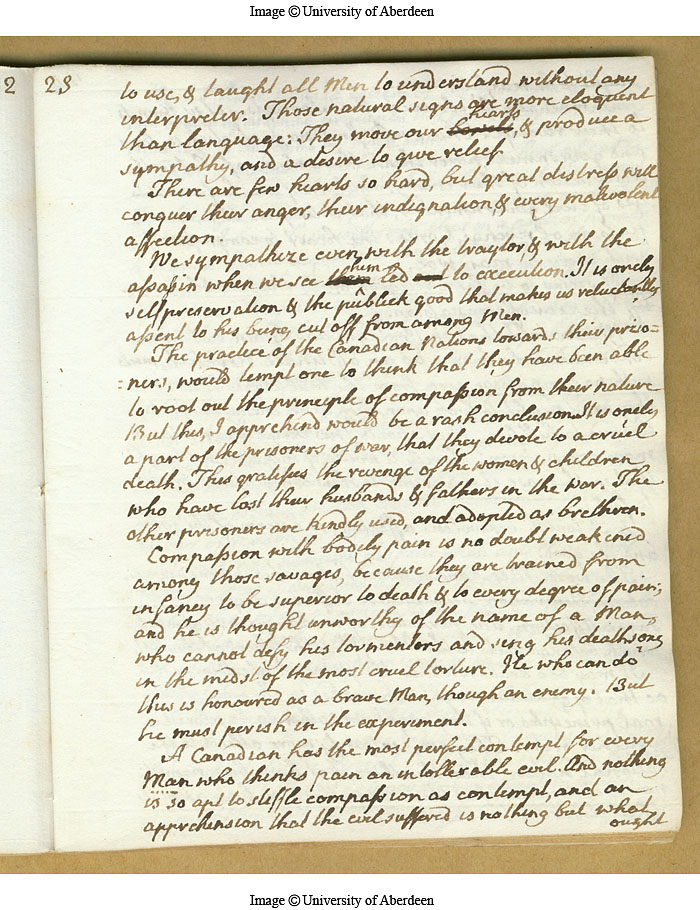 Image © University of Aberdeen
2 23
to use, & taught all Men to understand without any
interpreter. Those natural signs are more eloquent
than language: They move our bowels hearts, & produce a
sympathy, and a desire to give relief
There are few hearts so hard, but great distress will
conquer their anger, their indignation, & every malevolent
affection.
We sympathize even with the traytor, & with the
assassin when we see them him led out to execution. It is onely
self preservation & the publick good that makes us reluctantly
assent to his being cut off from among Men.
The practice of the Canadian Nations towards their priso=
=ners, would tempt one to think that they have been able
to root out the principle of compassion from their nature
But this, I apprehend would be a rash conclusion. It is onely
a part of the prisoners of war, that they devote to a cruel
death. This gratifies the revenge of the women & children
who have lost their husbands & fathers in the war. The
other prisoners are kindly used, and adopted as brethren.
Compassion with bodily pain is no doubt weakened
among those savages, because they are trained from
infancy to be superior to death & to every degree of pain;
and he is thought unworthy of the name of a Man,
who cannot defy his tormentors and sing his death song
in the midst of the most cruel torture. He who can do
this is honoured as a brave Man, though an enemy. But
he must perish in the experiment.
A Canadian has the most perfect contempt for every
Man who thinks pain an intollerable evil. And nothing
is so apt to stiffle compassion as contempt, and an
apprehension that the evil suffered is nothing but what
ought
Image © University of Aberdeen